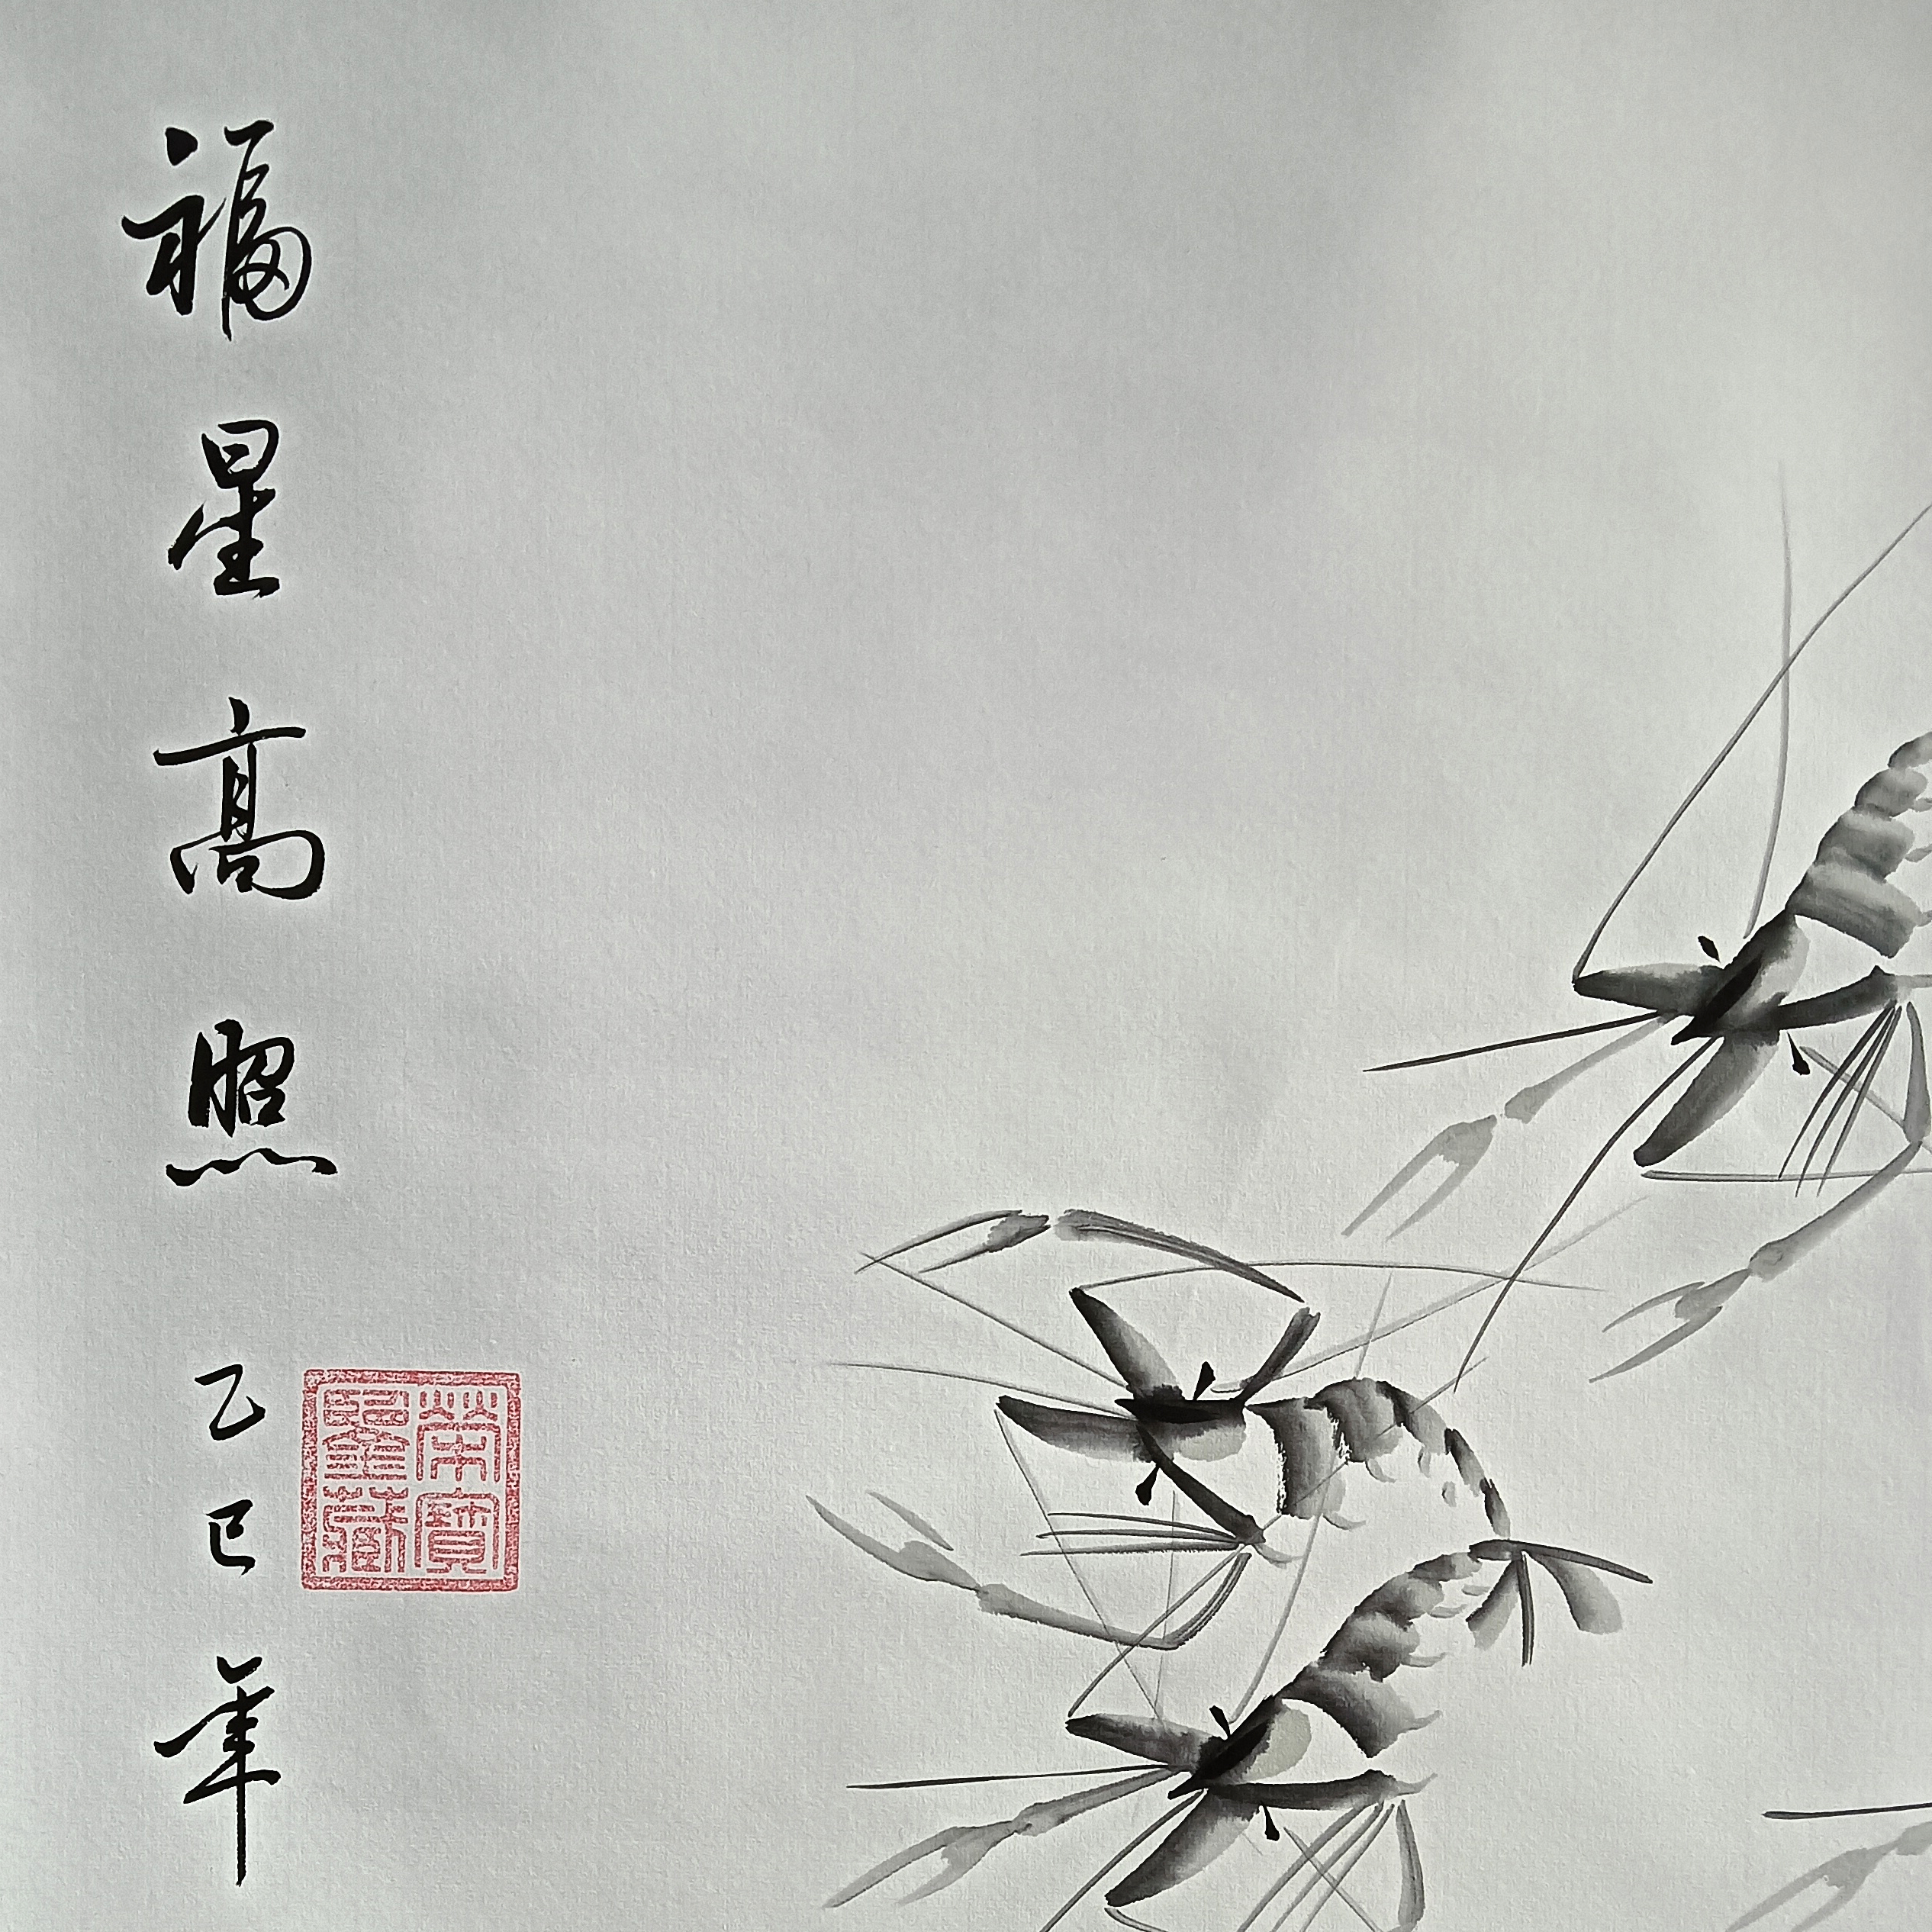 福星高照
乙巳年
榮寶
藏